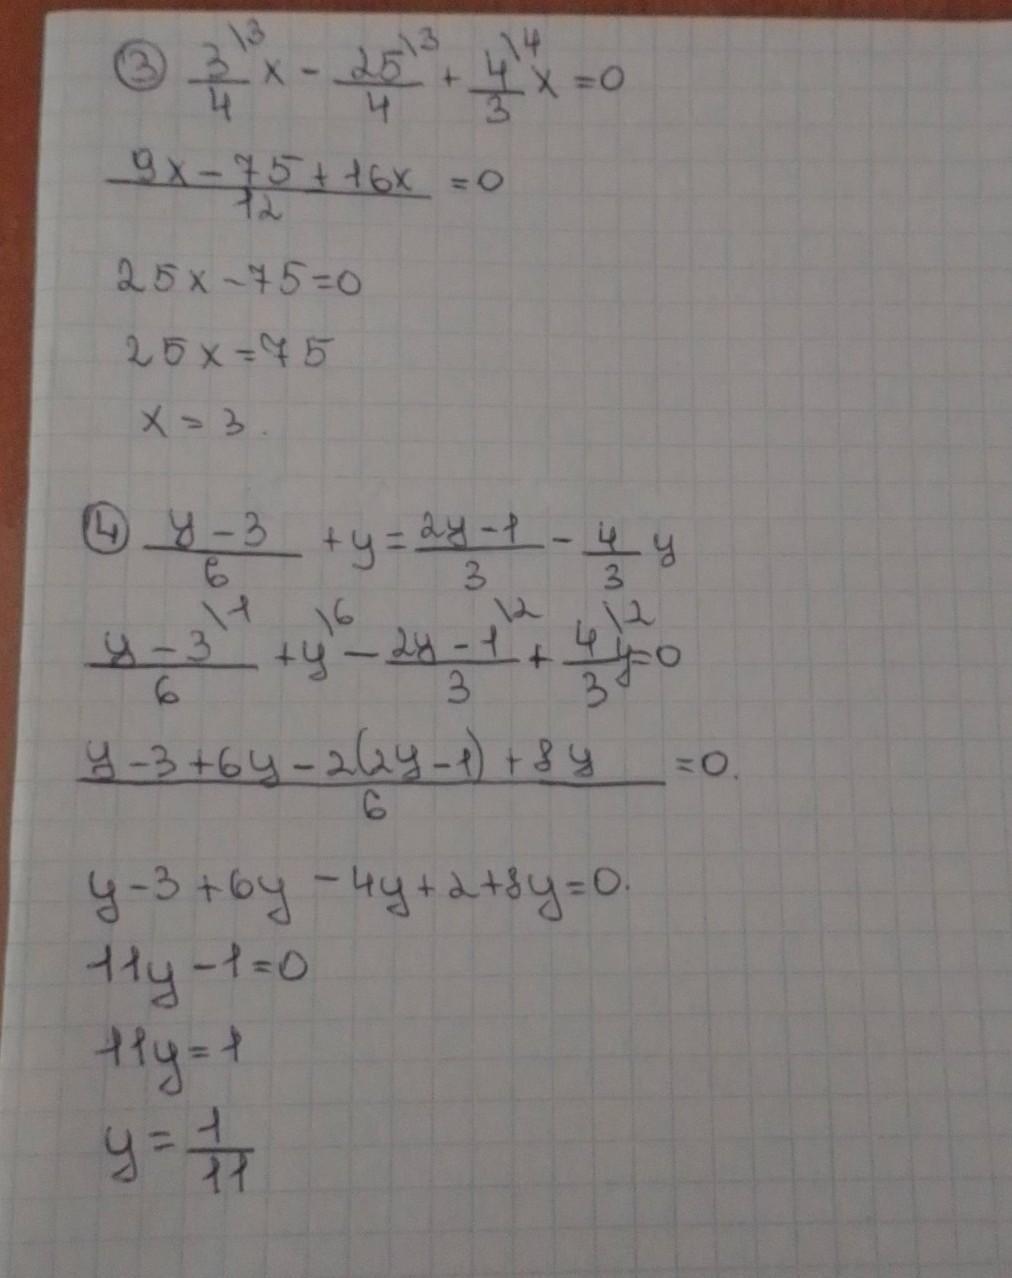 ③ 3\3/4 x - 25\3/4 + 4\4/3 x = 0
9x - 75 + 16x / 12 = 0
25x - 75 = 0
25x = 75
x = 3.
④ y - 3 / 6 + y = 2y - 1 / 3 - 4/3 y
y - 3\1 / 6 + y\6 - 2y - 1\2 / 3 + 4\2/3 y = 0
y - 3 + 6y - 2(2y - 1) + 8y / 6 = 0.
y - 3 + 6y - 4y + 2 + 8y = 0.
11y - 1 = 0
11y = 1
y = 1/11